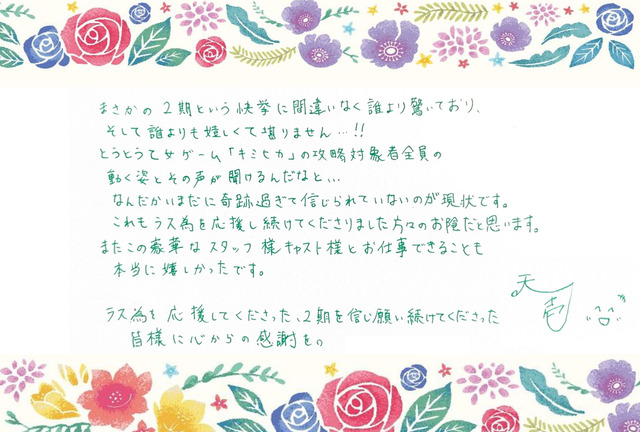 まさかの2期という快挙に間違いなく誰より驚いており、
そして誰よりも嬉しくて堪りません…!!
とうとう乙女ゲーム「キミヒカ」の攻略対象者全員の
動く姿とその声が聞けるんだなと…
なんだかいまだに奇跡過ぎて信じられていないのが現状です。
これもラス為を応援し続けてくださりました方々のお陰だと思います。
またこの豪華なスタッフ様キャスト様とお仕事できることも
本当に嬉しかったです。
ラス為を応援してくださった、2期を信じ願い続けてくださった
皆様に心からの感謝を。
天壱